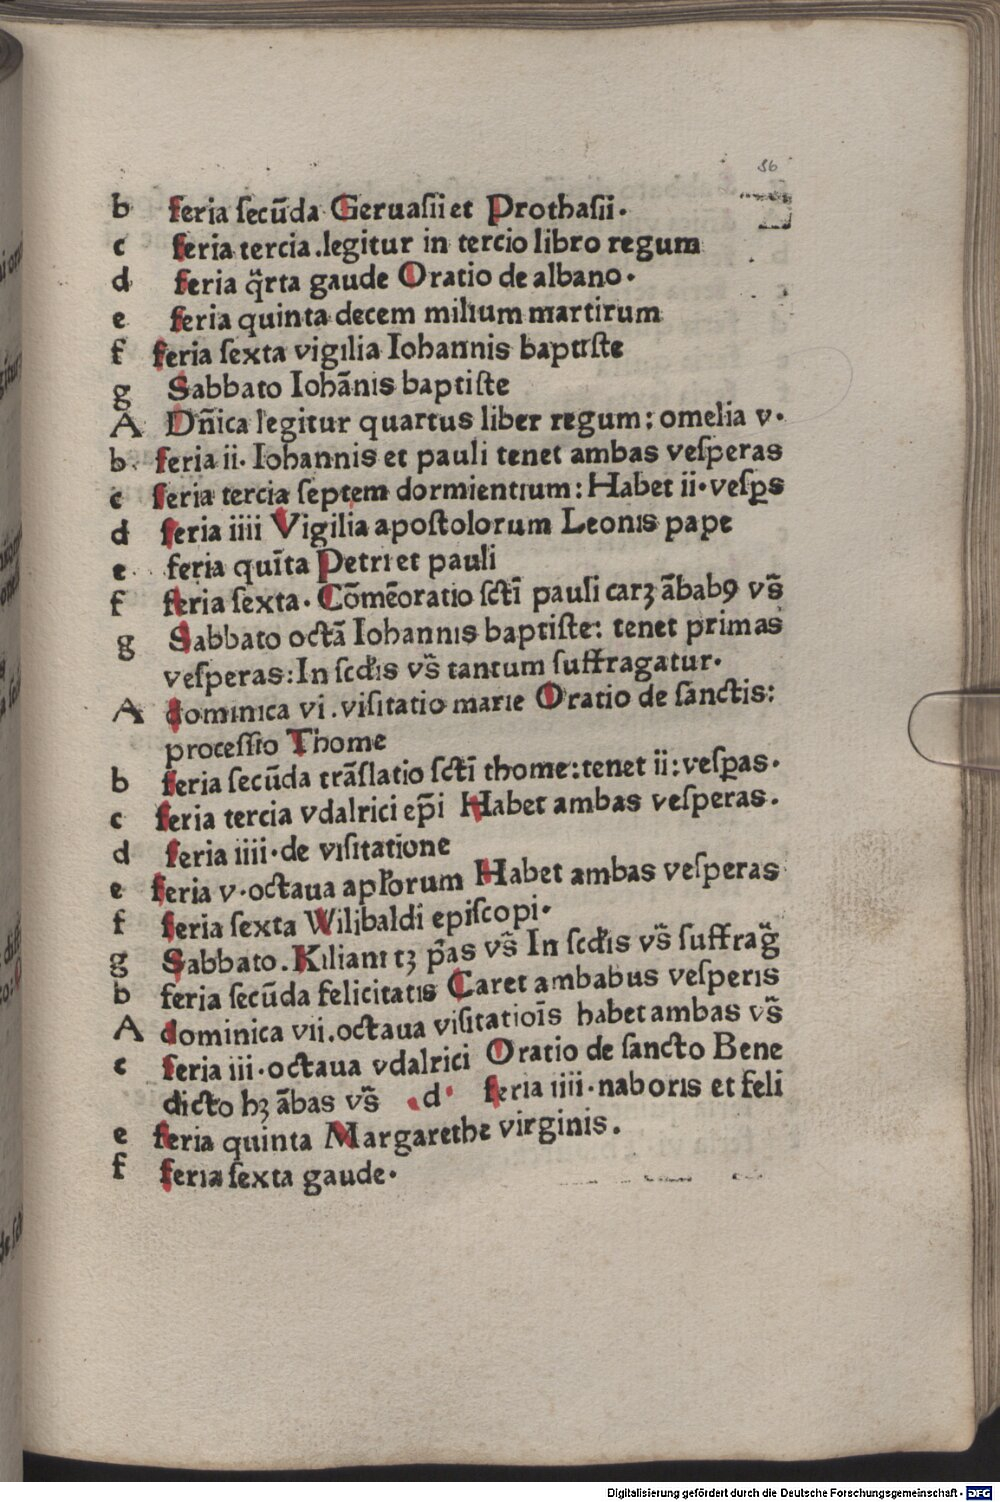 86
b feria ſecūda Geruaſii et Prothaſii.
c feria tercia .legitur in tercio libro regum
d feria q̄rta gaude Oratio de albano.
e feria quinta decem milium martirum
f feria ſexta vigilia Iohannis baptiſte
g Sabbato Iohānis baptiſte
A Dn̄ica legitur quartus liber regum: omelia v.
b. feria ii. Iohannis et pauli tenet ambas veſperas
c feria tercia ſeptem dormientium: Habet ii. veſꝑs
d feria iiii Vigilia apoſtolorum Leonis pape
e feria quīta Petri et pauli
f feria ſexta. Cōmēoratio ſctī pauli carꝫ ābabꝯ vs̄
g Sabbato octā Iohannis baptiſte: tenet primas
veſperas: In ſcd̄is vs̄ tantum ſuffragatur.
A dominica vi . viſitatio marie Oratio de ſanctis:
proceſſio Thome
b feria ſecūda trāſlatio ſctī thome: tenet ii: veſꝑas.
c feria tercia vdalrici ep̄i Habet ambas veſperas.
d feria iiii. de viſitatione
e feria v. octaua apl̄orum Habet ambas veſperas
f feria ſexta Wilibaldi epiſcopi.
g Sabbato. Kiliani tꝫ p̄as vs̄ In ſcd̄is vs̄ ſuffrag̃
b feria ſecūda felicitatis Caret ambabus veſperis
A dominica vii. octaua viſitatiōis habet ambas vs̄
c feria iii. octaua vdalrici Oratio de ſancto Bene
dicto hꝫ ābas vs̄ d feria iiii. naboris et feli
e feria quinta Margarethe virginis.
f feria ſexta gaude.
Digitalisierung gefördert durch die Deutsche Forschungsgemeinschaft - DFG